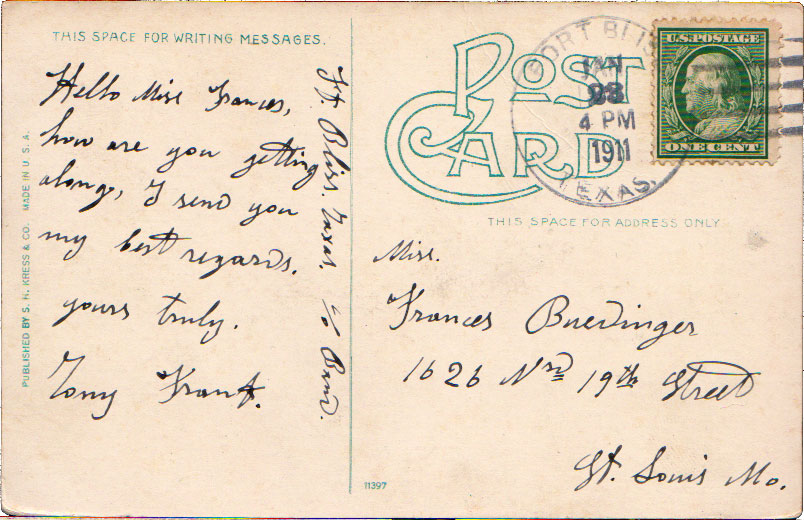 THIS SPACE FOR WRITING MESSAGES.
Hello Miss Frances,
how are you getting
along, I send you
my best regards.
yours truly.
Tony
Ft. Bliss. Texas.
PUBLISHED BY S. H. KRESS & CO. MADE IN U.S.A.
POST CARD
FORT BLISS
JAN
23
4 PM
1911
TEXAS.
U.S. POSTAGE
ONE CENT
THIS SPACE FOR ADDRESS ONLY
Miss.
Frances Buedinger
1626 Nrd 19th Street
St. Louis Mo.
11397